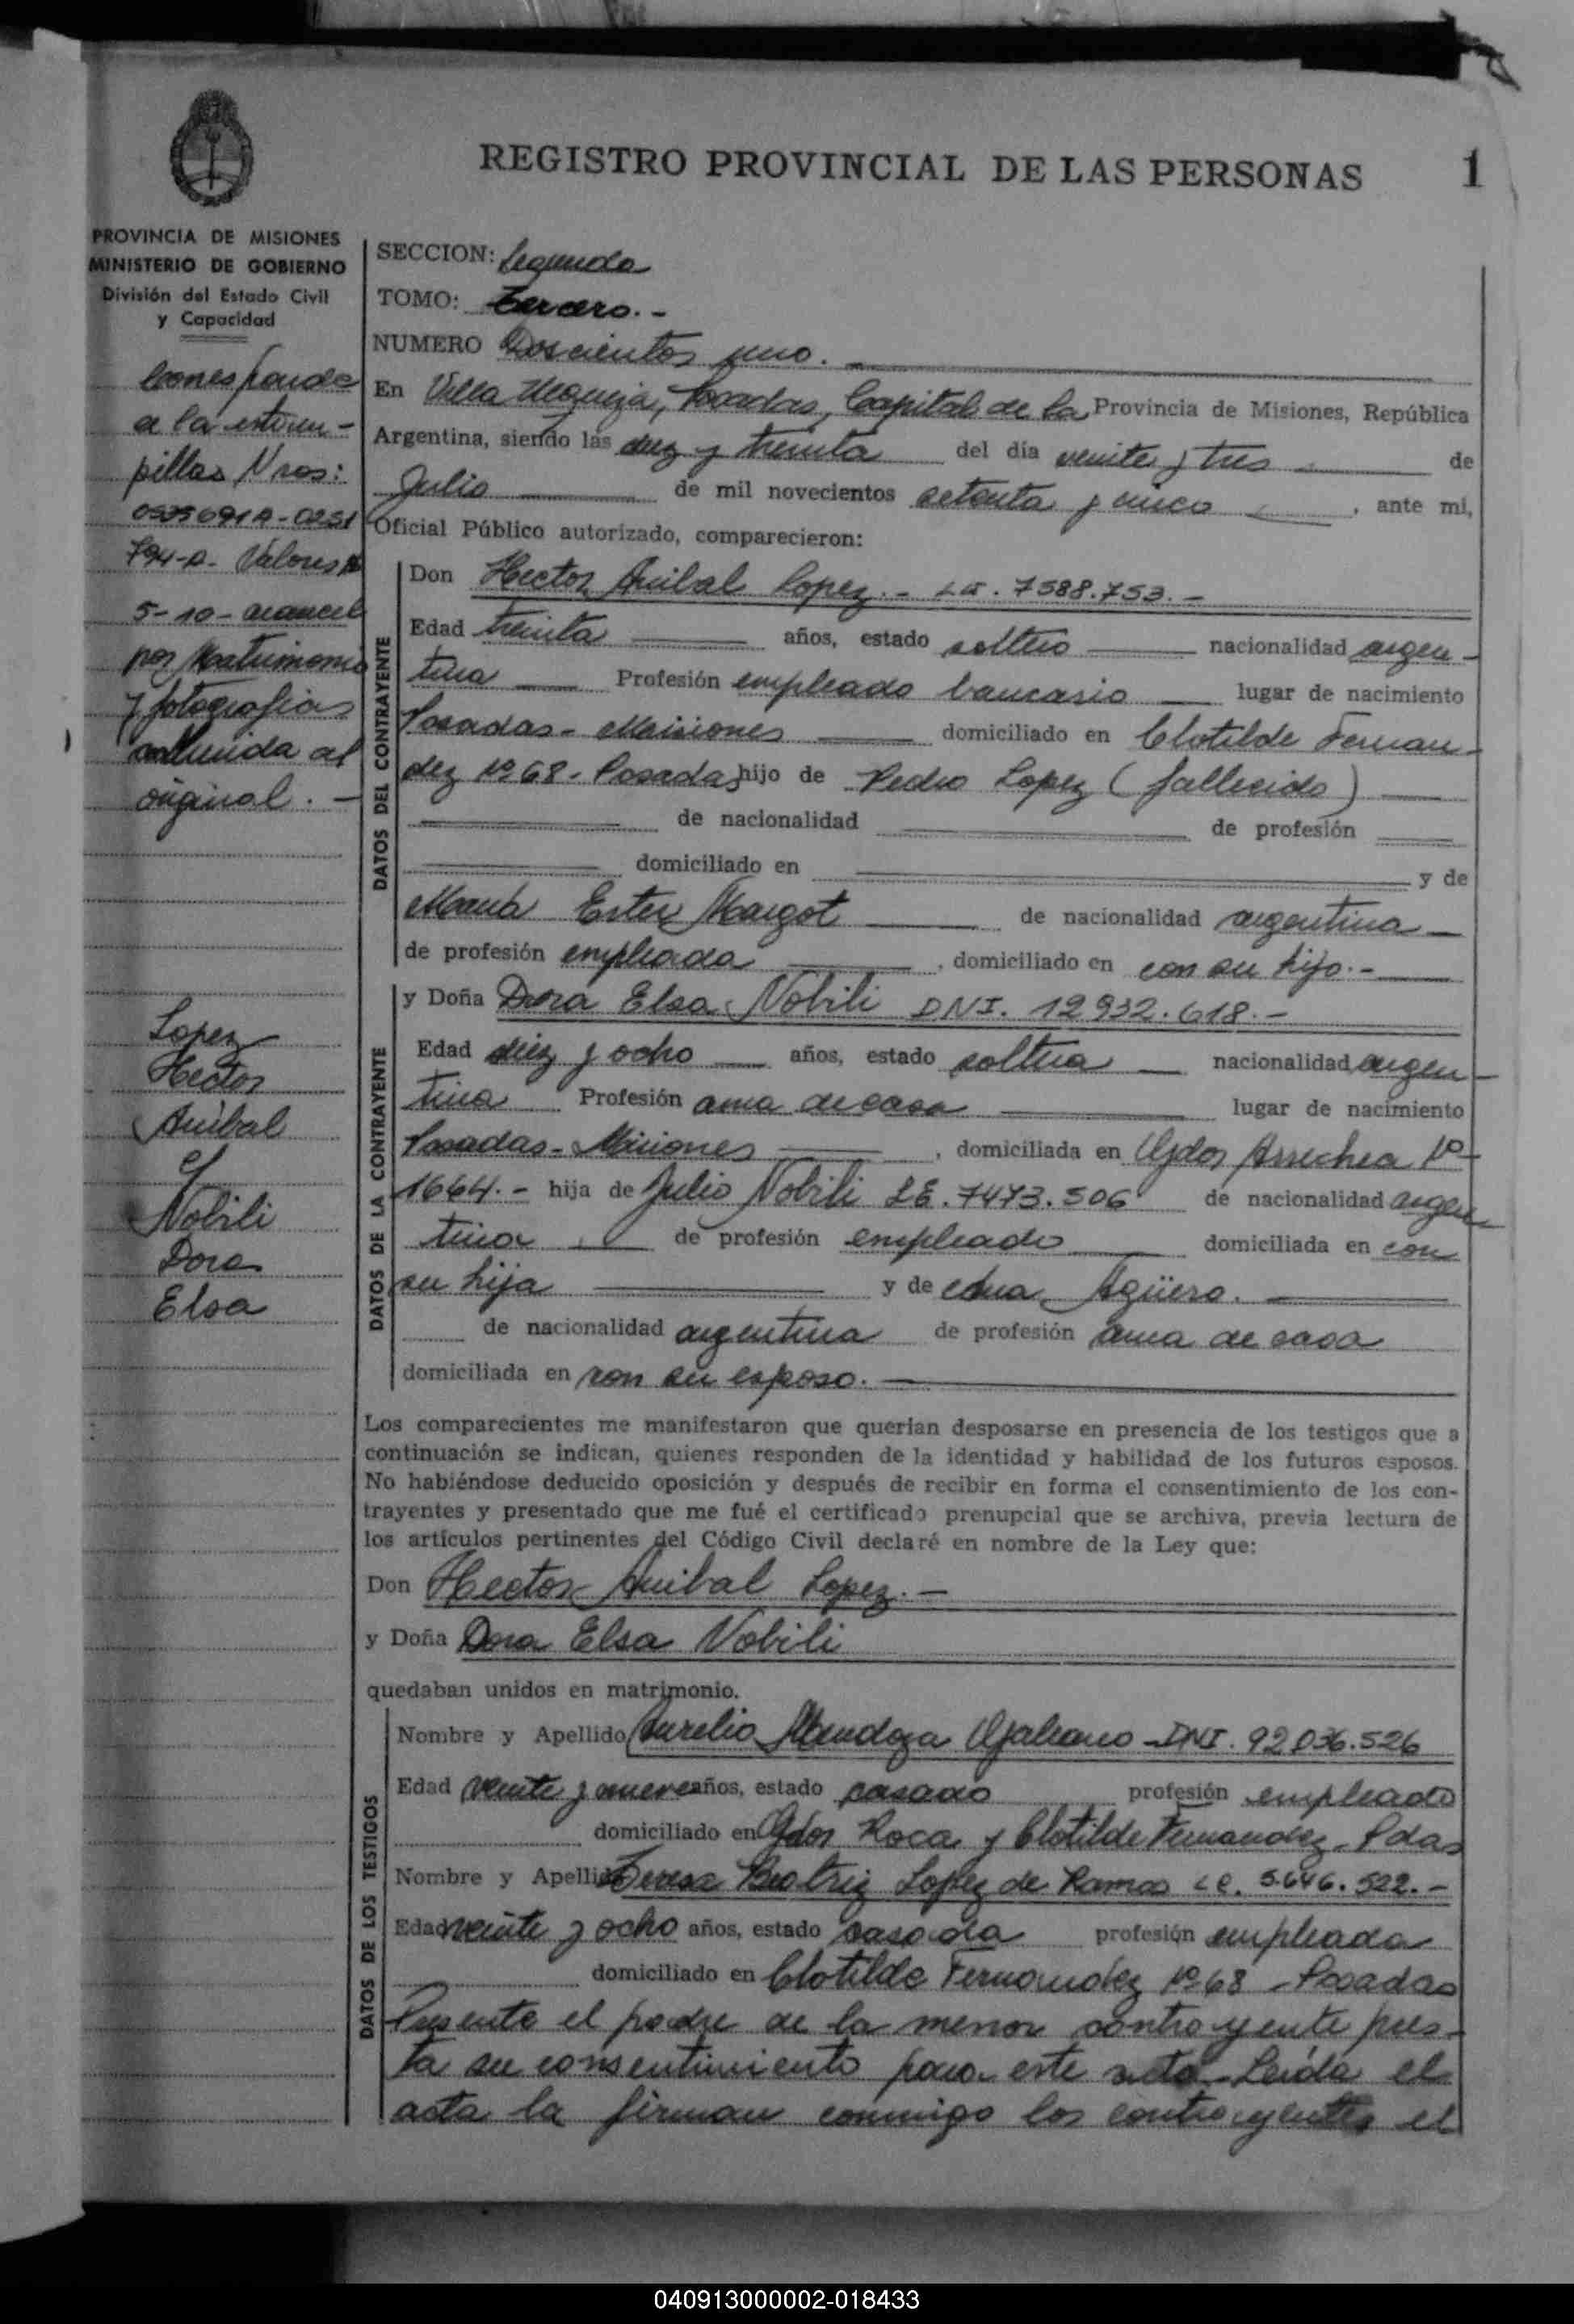 REGISTRO PROVINCIAL DE LAS PERSONAS 1
PROVINCIA DE MISIONES
MINISTERIO DE GOBIERNO
División del Estado Civil
y Capacidad
Corresponde
a la estam-
pillas Nros:
0535691A-0251
794-A- Valores
5-10- arancel
por Matrimonio
y fotografias
adherida al
original.-
Lopez
Hector
Anibal
y
Nobili
Dora
Elsa
SECCION: Segunda
TOMO: Tercero.-
NUMERO Doscientos uno.
En Villa Urquiza, Posadas, Capital de la Provincia de Misiones, República
Argentina, siendo las diez y treinta del día veinte y tres de
Julio de mil novecientos setenta y cinco, ante mi,
Oficial Público autorizado, comparecieron:
DATOS DEL CONTRAYENTE
Don Hector Anibal Lopez.- LE. 7588.753.-
Edad treinta años, estado soltero nacionalidad argen-
tina Profesión empleado bancario lugar de nacimiento
Posadas- Misiones domiciliado en Clotilde Fernan-
dez Nº 68- Posadas hijo de Pedro Lopez (fallecido)
de nacionalidad de profesión
domiciliado en y de
María Ester Margot de nacionalidad argentina
de profesión empleada, domiciliado en con su hijo.-
DATOS DE LA CONTRAYENTE
y Doña Dora Elsa Nobili DNI. 12932.618.-
Edad diez y ocho años, estado soltera nacionalidad argen-
tina Profesión ama de casa lugar de nacimiento
Posadas- Misiones, domiciliada en Gdor Arrechea Nº
1664.- hija de Julio Nobili LE. 7473.506 de nacionalidad argen-
tina de profesión empleado domiciliada en con
su hija y de Agüero.
de nacionalidad argentina de profesión ama de casa
domiciliada en con su esposo.
Los comparecientes me manifestaron que querían desposarse en presencia de los testigos que a
continuación se indican, quienes responden de la identidad y habilidad de los futuros esposos.
No habiéndose deducido oposición y después de recibir en forma el consentimiento de los con-
trayentes y presentado que me fué el certificado prenupcial que se archiva, previa lectura de
los artículos pertinentes del Código Civil declaré en nombre de la Ley que:
Don Hector Anibal Lopez.-
y Doña Dora Elsa Nobili
quedaban unidos en matrimonio.
DATOS DE LOS TESTIGOS
Nombre y Apellido Aurelio Mendoza Galeano - DNI. 92.036.526
Edad veinte y nueve años, estado casado profesión empleado
domiciliado en Gdor Roca y Clotilde Fernandez- Pdas
Nombre y Apellido Teresa Beatriz Lopez de Ramos LC. 5.646.522.-
Edad veinte y ocho años, estado casada profesión empleada
domiciliado en Clotilde Fernandez Nº 68 - Posadas
Presente el padre de la menor contrayente pres-
ta su consentimiento para este acto.- Leída el
acta la firman conmigo los contrayentes el
040913000002-018433